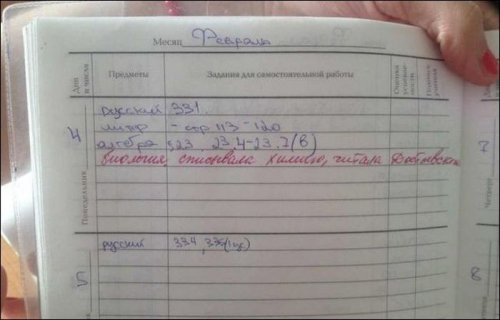 Месяц Февраль
Дни и числа Предметы Задания для самостоятельной работы Оценка успеваемости Подпись учителя
4 Понедельник
русский 331.
литер - стр 113-120
алгебра §23. 23.4-23.7(в)
биология, списывала химию, читала Достоевск
5
русский 334, 335(
7 Четверг
8